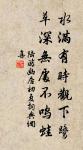 水滿有時觀下鷺
草深無處不鳴蛙
陸游幽居初夏